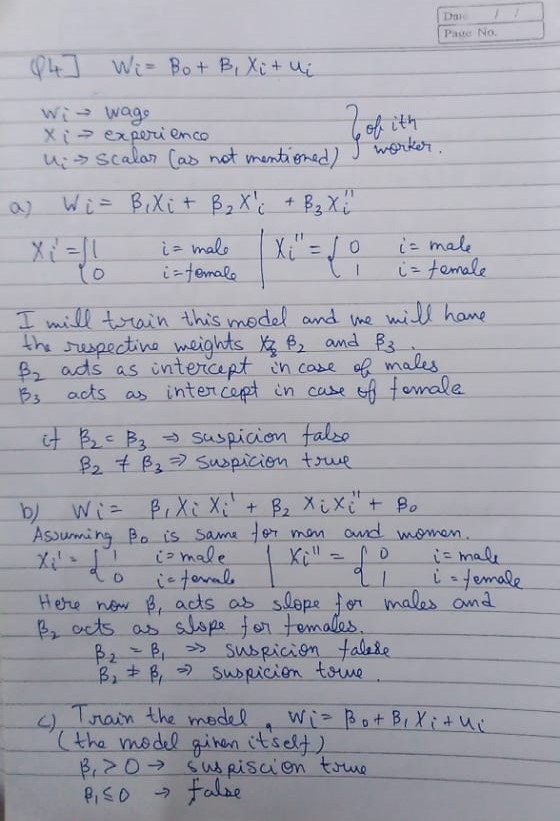 Date / /
Page No.
Q4] Wi = B0 + B1 Xi + ui
Wi → wage
Xi → experience
ui → scalar (as not mentioned)
} of ith worker.
a) Wi = β1Xi + β2X'i + β3Xi''
Xi' = { 1 i = male | Xi'' = { 0 i = male
0 i = female | 1 i = female
I will train this model and we will have
the respective weights β2 and β3.
β2 acts as intercept in case of males
β3 acts as intercept in case of female
if β2 = β3 ⇒ suspicion false
β2 ≠ β3 ⇒ suspicion true
b) Wi = β1 Xi Xi' + β2 XiXi'' + β0
Assuming β0 is same for men and women.
Xi' = { 1 i = male | Xi'' = { 0 i = male
0 i = female | 1 i = female
Here now β1 acts as slope for males and
β2 acts as slope for females.
β2 = β1 ⇒ suspicion false
β2 ≠ β1 ⇒ suspicion true.
c) Train the model, Wi = β0 + β1 Xi + ui
(the model given itself)
β1 > 0 → suspiscion true
β1 ≤ 0 → false